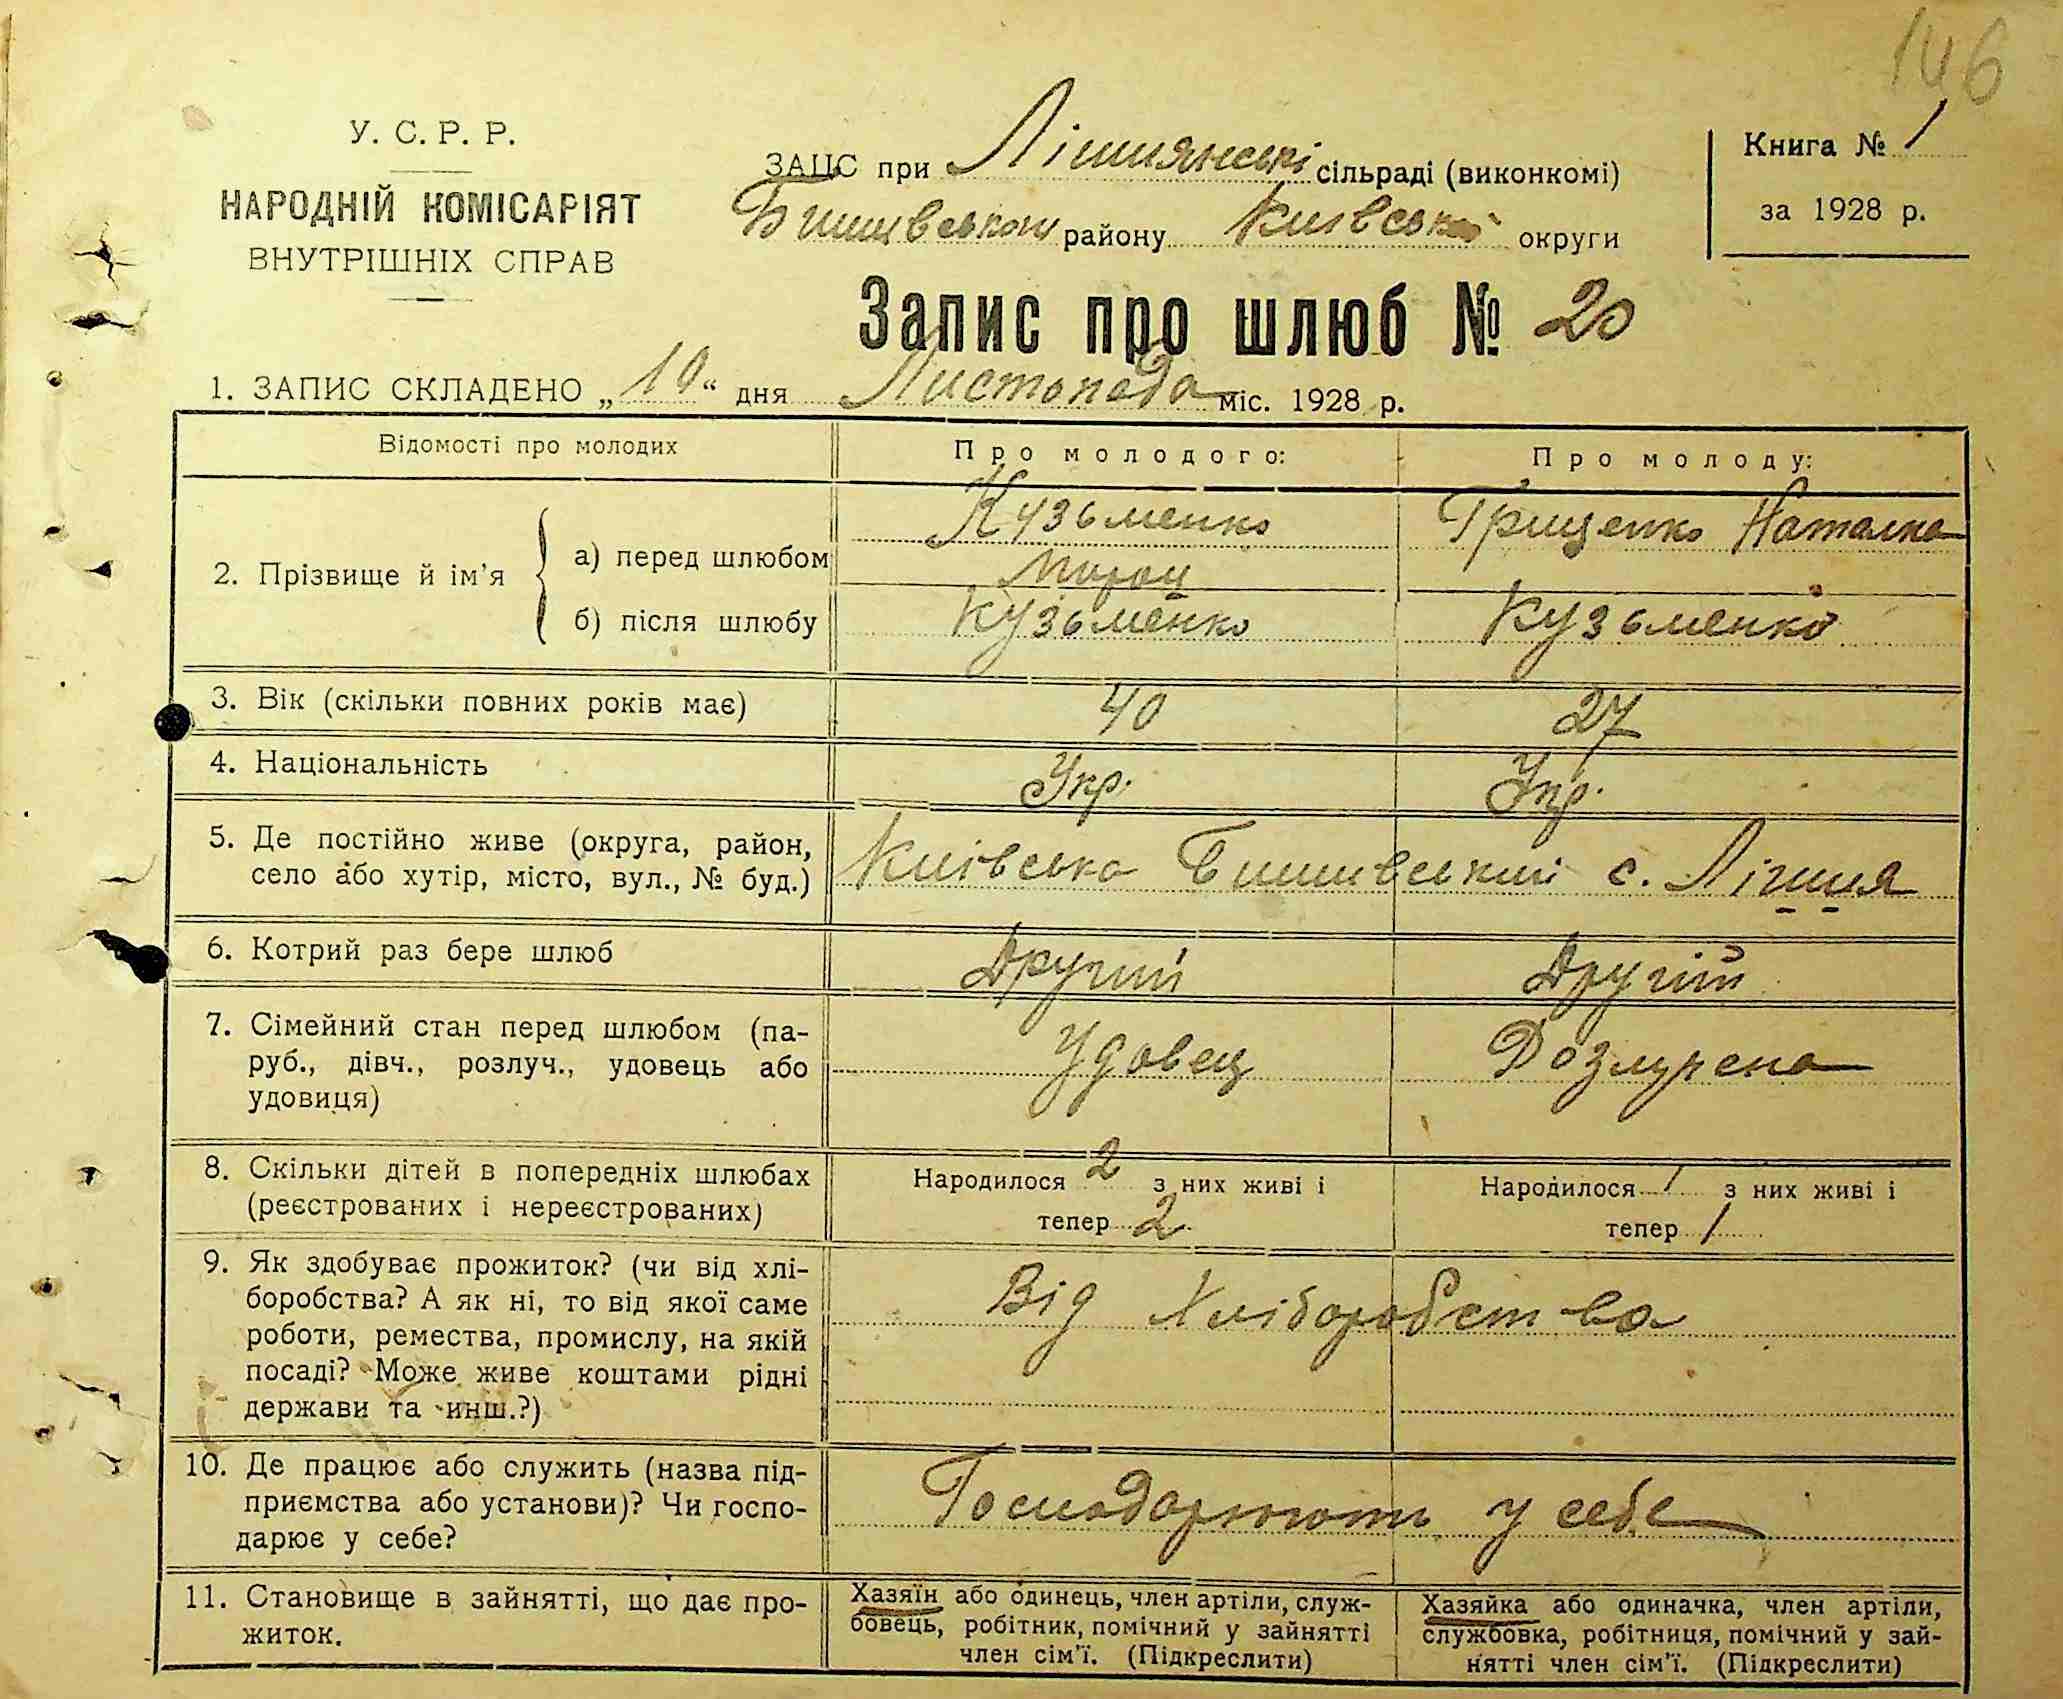 146
У. С. Р. Р.
НАРОДНІЙ КОМІСАРІЯТ
ВНУТРІШНІХ СПРАВ
ЗАЦС при Лішнянські сільраді (виконкомі)
Бишівського району Київської округи
Книга № 1
за 1928 р.
Запис про шлюб № 20
1. ЗАПИС СКЛАДЕНО „10“ дня Листопада міс. 1928 р.
Відомості про молодих
Про молодого:
Про молоду:
2. Прізвище й ім’я
а) перед шлюбом
Кузьменко
Грищенко Наталка
б) після шлюбу
Кузьменко
Кузьменко
3. Вік (скільки повних років має)
40
27
4. Національність
Укр.
Укр.
5. Де постійно живе (округа, район,
село або хутір, місто, вул., № буд.)
Київська Бишивський с. Лішня
6. Котрий раз бере шлюб
Другий
Другій
7. Сімейний стан перед шлюбом (па-
руб., дівч., розлуч., удовець або
удовиця)
Удовец
Розлучена
8. Скільки дітей в попередніх шлюбах
(реєстрованих і нереєстрованих)
Народилося 2 з них живі і
тепер 2
Народилося 1 з них живі і
тепер 1
9. Як здобуває прожиток? (чи від хлі-
боробства? А як ні, то від якої саме
роботи, ремества, промислу, на якій
посаді? Може живе коштами рідні
держави та инш.?)
Від Хліборобства
10. Де працює або служить (назва під-
приємства або установи)? Чи госпо-
дарює у себе?
Господарюють у себе
11. Становище в зайнятті, що дає про-
житок.
Хазяїн або одинець, член артіли, служ-
бовець, робітник, помічний у зайнятті
член сім’ї. (Підкреслити)
Хазяйка або одиначка, член артіли,
службовка, робітниця, помічний у зай-
нятті член сім’ї. (Підкреслити)